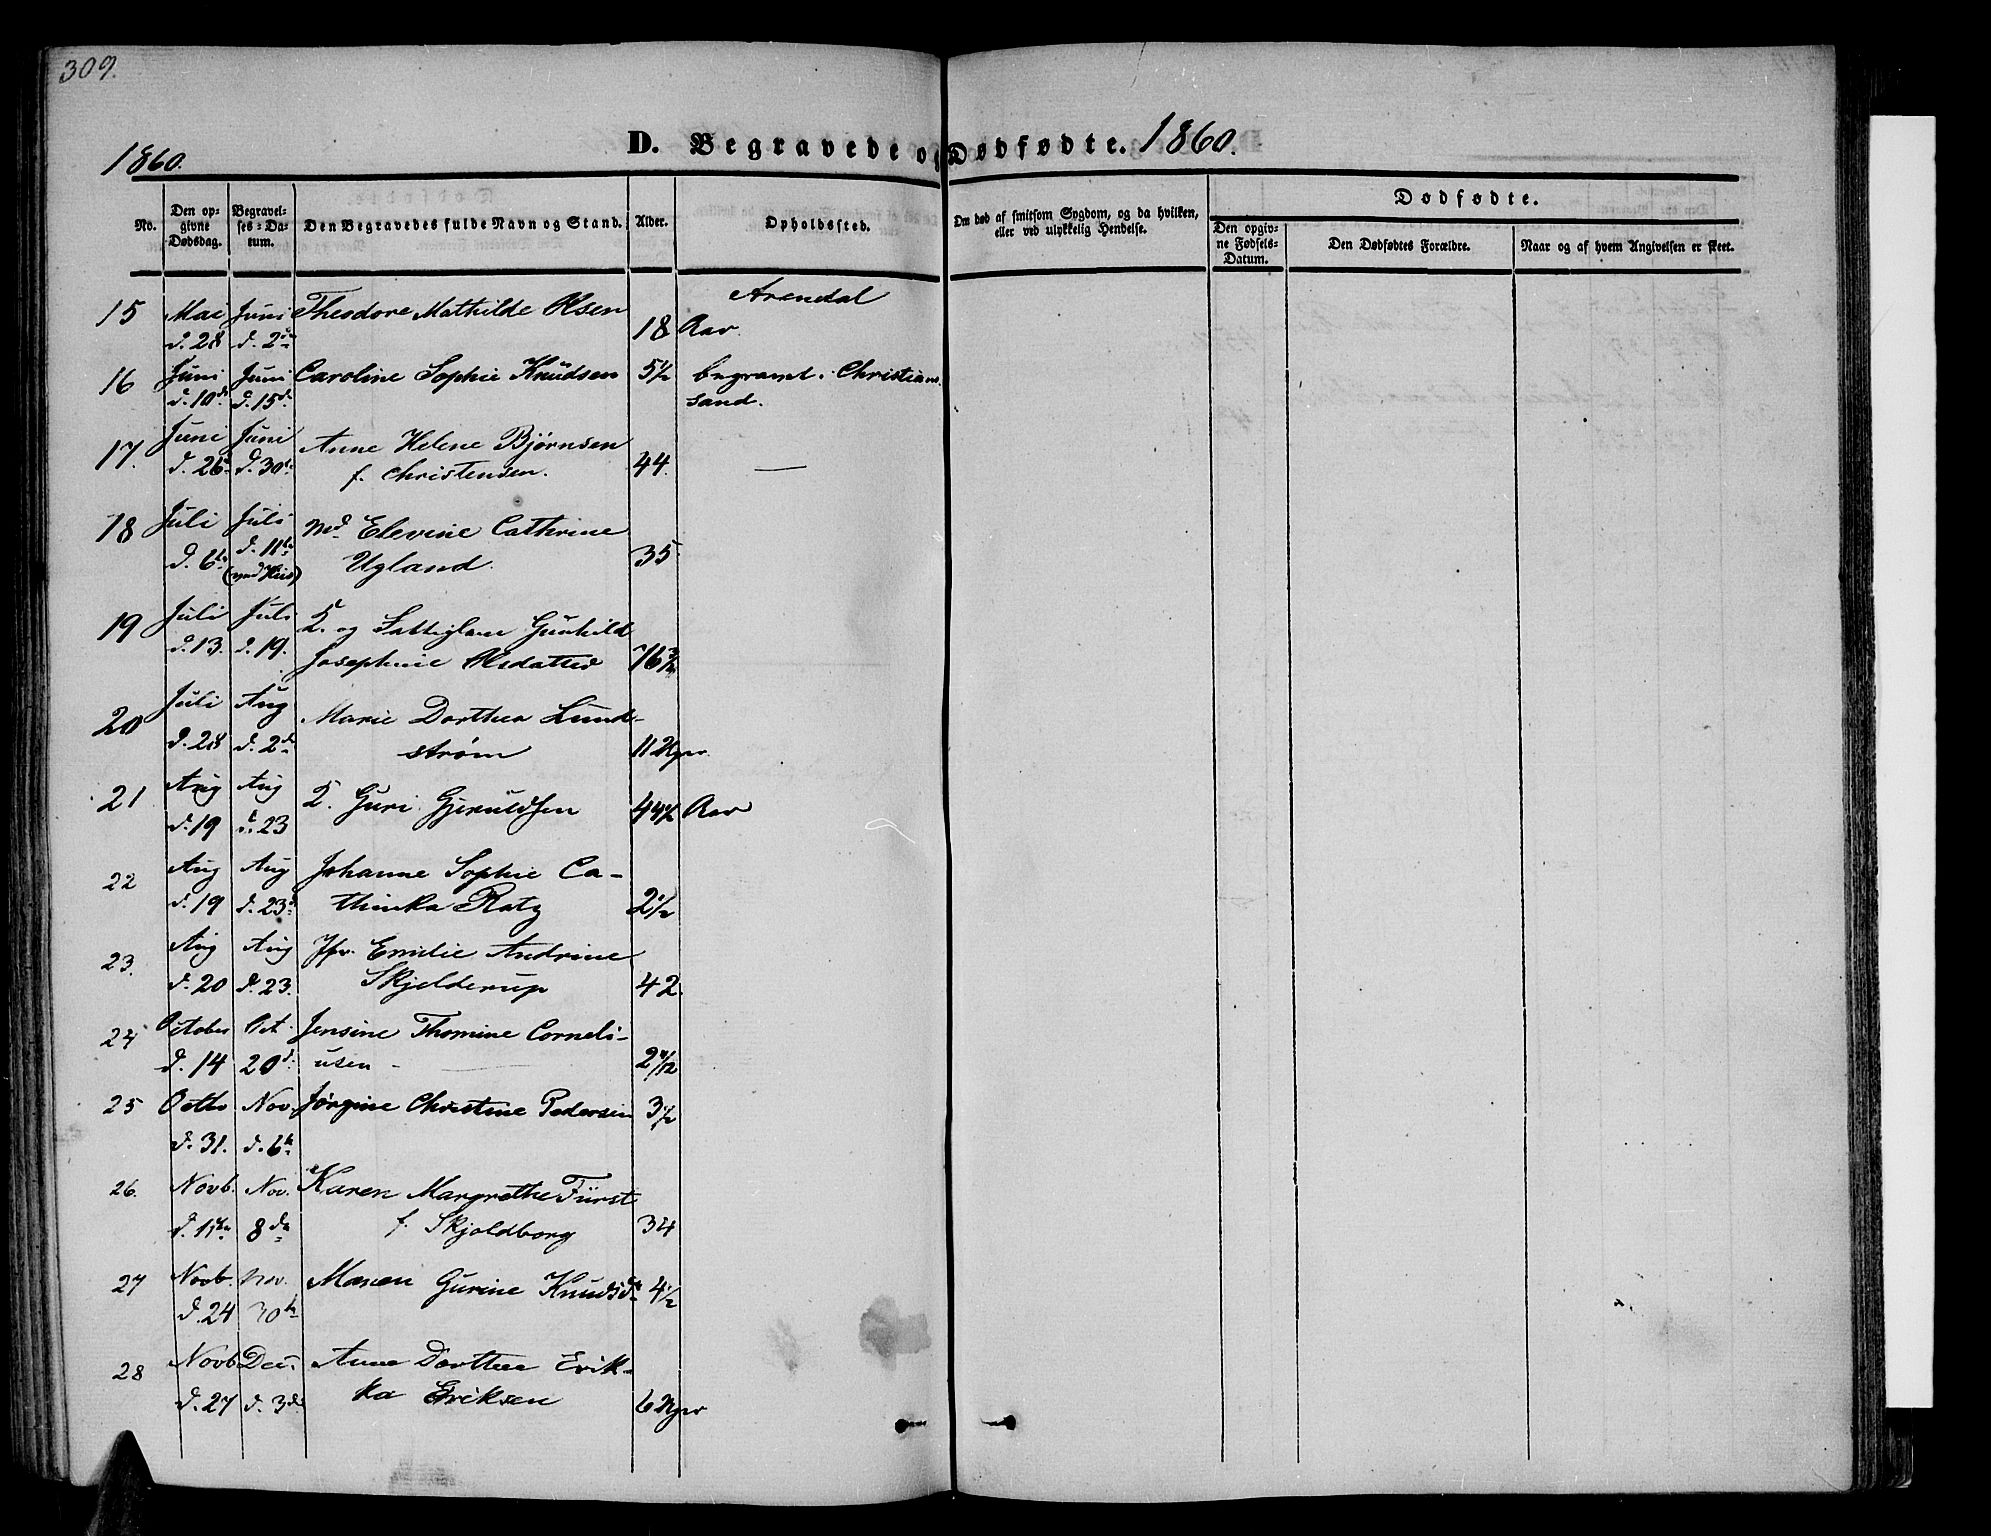 309.
1860.
D. Begravede og Dødfødte. 1860.
No.
Den opgivne Dødsdag.
Begravelses-Datum.
Den Begravedes fulde Navn og Stand.
Alder.
Opholdssted.
Om død af smitsom Sygdom, og da hvilken, eller ved ulykkelig Hendelse.
Dødfødte.
Den opgivne Fødsels-Datum.
Den Dødfødtes Forældre.
Naar og af hvem Angivelsen er skeet.
Arendal
15 Mai Juni Theodore Mathilde Olsen
d. 28 d. 2 18 Aar.
16 Juni Juni Caroline Sophie Knudsen 5½ begravet i Christian
d. 10 d. 15 sand.
17. Juni Juni Anne Helene Bjørnsen
d. 26 d. 30 f. Christensen. 44. —
18 Juli Juli Md Elevine Cathrine
d. 6 d. 11 Ugland. 35
19 Juli Juli F. og Gunhild
d. 13. d. 19. Josephine Olsdatter 76
20 Juli Aug Marie Dorthea Lund-
d. 28 d. 2 strøm 11 Uger
21 Aug Aug F. Guri Gjeruldsen 44½ Aar
d. 19 d. 23
22 Aug Aug Johanne Sophie Ca-
d. 19 d. 23 thinka Ratz 2½
23. Aug Aug Jfr. Emilie Andrine
d. 20 d. 23. Skjelderup 42.
24 October Oct Jensine Thomine Corneli-
d. 14 20 d. usen -
25 Octb Nov. Jørgine Christine Pedersen 3½
d. 31. d. 6
26. Novb. Nov. Karen Margrethe Fürst
d. 1 8 f. Skjoldborg 34
27 Novb. Nov. Maren Gurine Knudsd 4½
d. 24 30
28 Novb Dec. Anne Dorthea Erik-
d. 27 d. 3 ka Eriksen 6 Uger